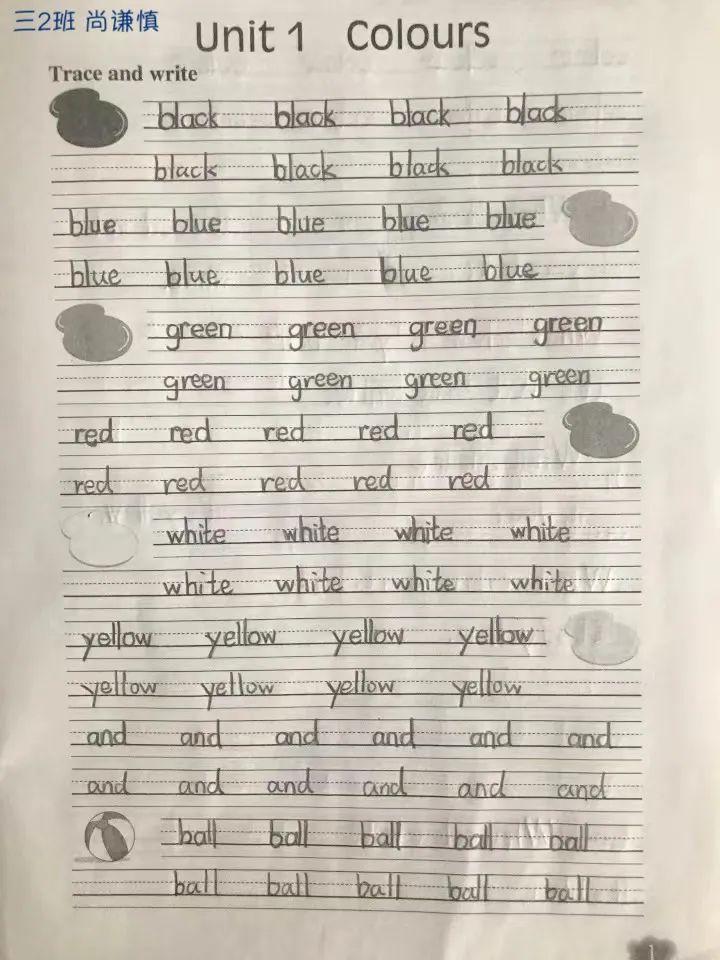 三2班 尚谦慎
Unit 1 Colours
Trace and write
black black black black
black black black black
blue blue blue blue blue
blue blue blue blue blue
green green green green
green green green green
red red red red red
red red red red red
white white white white
white white white white
yellow yellow yellow yellow
yellow yellow yellow yellow
and and and and and and
and and and and and and
ball ball ball ball ball
ball ball ball ball ball
1